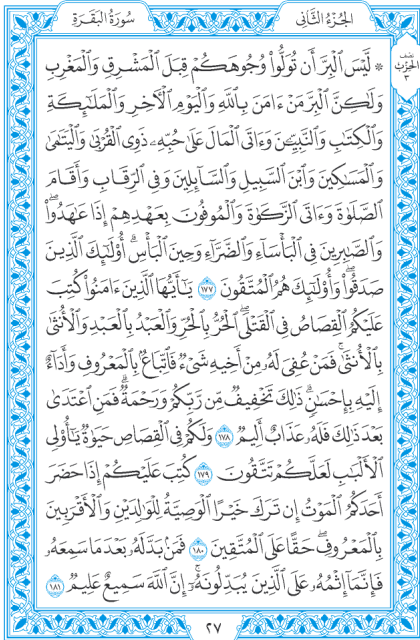 الجُزءُ الثَّانِي
سُورَةُ البَقَرَةِ
نصف
الحزب
٣
۞ لَّيْسَ ٱلْبِرَّ أَن تُوَلُّوا۟ وُجُوهَكُمْ قِبَلَ ٱلْمَشْرِقِ وَٱلْمَغْرِبِ
وَلَٰكِنَّ ٱلْبِرَّ مَنْ ءَامَنَ بِٱللَّهِ وَٱلْيَوْمِ ٱلْءَاخِرِ وَٱلْمَلَٰٓئِكَةِ
وَٱلْكِتَٰبِ وَٱلنَّبِيِّـۧنَ وَءَاتَى ٱلْمَالَ عَلَىٰ حُبِّهِۦ ذَوِى ٱلْقُرْبَىٰ وَٱلْيَتَٰمَىٰ
وَٱلْمَسَٰكِينَ وَٱبْنَ ٱلسَّبِيلِ وَٱلسَّآئِلِينَ وَفِى ٱلرِّقَابِ وَأَقَامَ
ٱلصَّلَوٰةَ وَءَاتَى ٱلزَّكَوٰةَ وَٱلْمُوفُونَ بِعَهْدِهِمْ إِذَا عَٰهَدُوا۟ۖ
وَٱلصَّٰبِرِينَ فِى ٱلْبَأْسَآءِ وَٱلضَّرَّآءِ وَحِينَ ٱلْبَأْسِۗ أُو۟لَٰٓئِكَ ٱلَّذِينَ
صَدَقُوا۟ۖ وَأُو۟لَٰٓئِكَ هُمُ ٱلْمُتَّقُونَ ١٧٧ يَٰٓأَيُّهَا ٱلَّذِينَ ءَامَنُوا۟ كُتِبَ
عَلَيْكُمُ ٱلْقِصَاصُ فِى ٱلْقَتْلَىۖ ٱلْحُرُّ بِٱلْحُرِّ وَٱلْعَبْدُ بِٱلْعَبْدِ وَٱلْأُنثَىٰ
بِٱلْأُنثَىٰۚ فَمَنْ عُفِىَ لَهُۥ مِنْ أَخِيهِ شَىْءٌ فَٱتِّبَاعٌۢ بِٱلْمَعْرُوفِ وَأَدَآءٌ
إِلَيْهِ بِإِحْسَٰنٍۗ ذَٰلِكَ تَخْفِيفٌ مِّن رَّبِّكُمْ وَرَحْمَةٌۗ فَمَنِ ٱعْتَدَىٰ
بَعْدَ ذَٰلِكَ فَلَهُۥ عَذَابٌ أَلِيمٌ ١٧٨ وَلَكُمْ فِى ٱلْقِصَاصِ حَيَوٰةٌ يَٰٓأُو۟لِى
ٱلْأَلْبَٰبِ لَعَلَّكُمْ تَتَّقُونَ ١٧٩ كُتِبَ عَلَيْكُمْ إِذَا حَضَرَ
أَحَدَكُمُ ٱلْمَوْتُ إِن تَرَكَ خَيْرًا ٱلْوَصِيَّةُ لِلْوَٰلِدَيْنِ وَٱلْأَقْرَبِينَ
بِٱلْمَعْرُوفِۖ حَقًّا عَلَى ٱلْمُتَّقِينَ ١٨٠ فَمَنۢ بَدَّلَهُۥ بَعْدَ مَا سَمِعَهُۥ
فَإِنَّمَآ إِثْمُهُۥ عَلَى ٱلَّذِينَ يُبَدِّلُونَهُۥٓۚ إِنَّ ٱللَّهَ سَمِيعٌ عَلِيمٌ ١٨١
٢٧